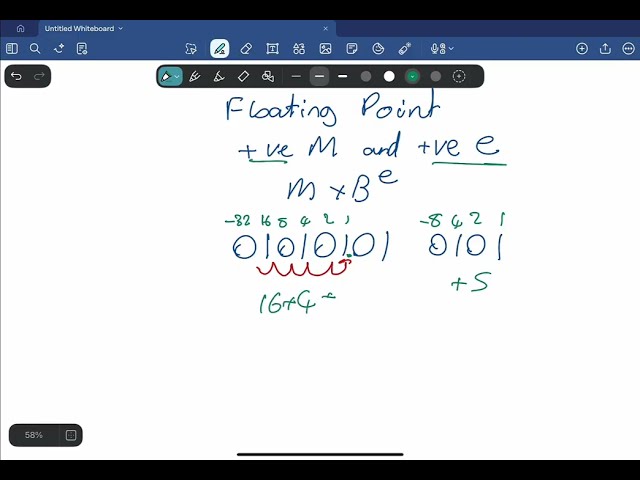 Untitled Whiteboard
Floating Point
+ve M and +ve e
M × B^e
-32 16 8 4 2 1 -8 4 2 1
010101.01 0101
+5
16+4+
58%